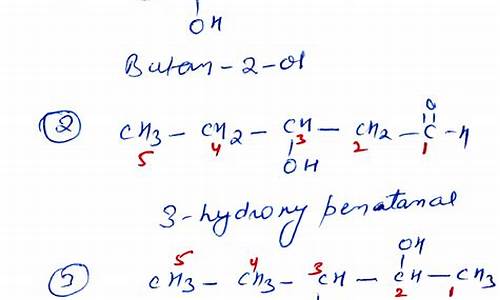 OH
Butan-2-ol
(2) CH3 - CH2 - CH - CH2 - C - H
O
5 4 3 2 1
OH
3-hydroxy penatanal
OH
5 4 3
(3) CH3 - CH3 - CH - CH - CH3
2 1